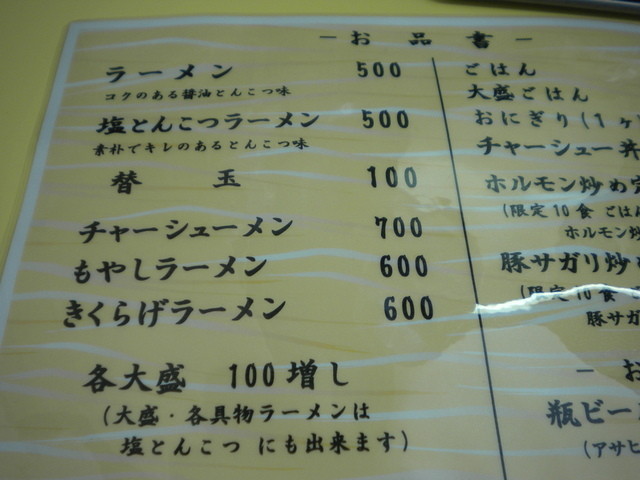 －お品書－
ラーメン 500
コクのある醤油とんこつ味
塩とんこつラーメン 500
素朴でキレのあるとんこつ味
替玉 100
チャーシューメン 700
もやしラーメン 600
きくらげラーメン 600
各大盛 100増し
(大盛・各具物ラーメンは
塩とんこつ にも出来ます)
ごはん
大盛ごはん
おにぎり(1ヶ
チャーシュー丼
ホルモン炒め
(限定10食 ごはん
ホルモン炒
豚サガリ炒め
(限定10食
豚サガ
－お
瓶ビー
(アサヒ